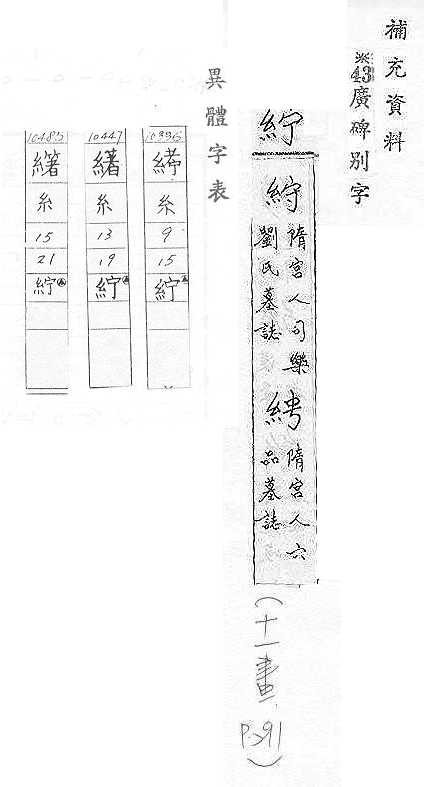 補充資料
※43廣碑别字
紵
隋宮人司樂
劉氏墓誌
隋宮人六
品墓誌
(十一畫,
P.291)
異體字表
10396
糸
9
15
紵
10447
糸
13
19
紵
10485
糸
15
21
紵